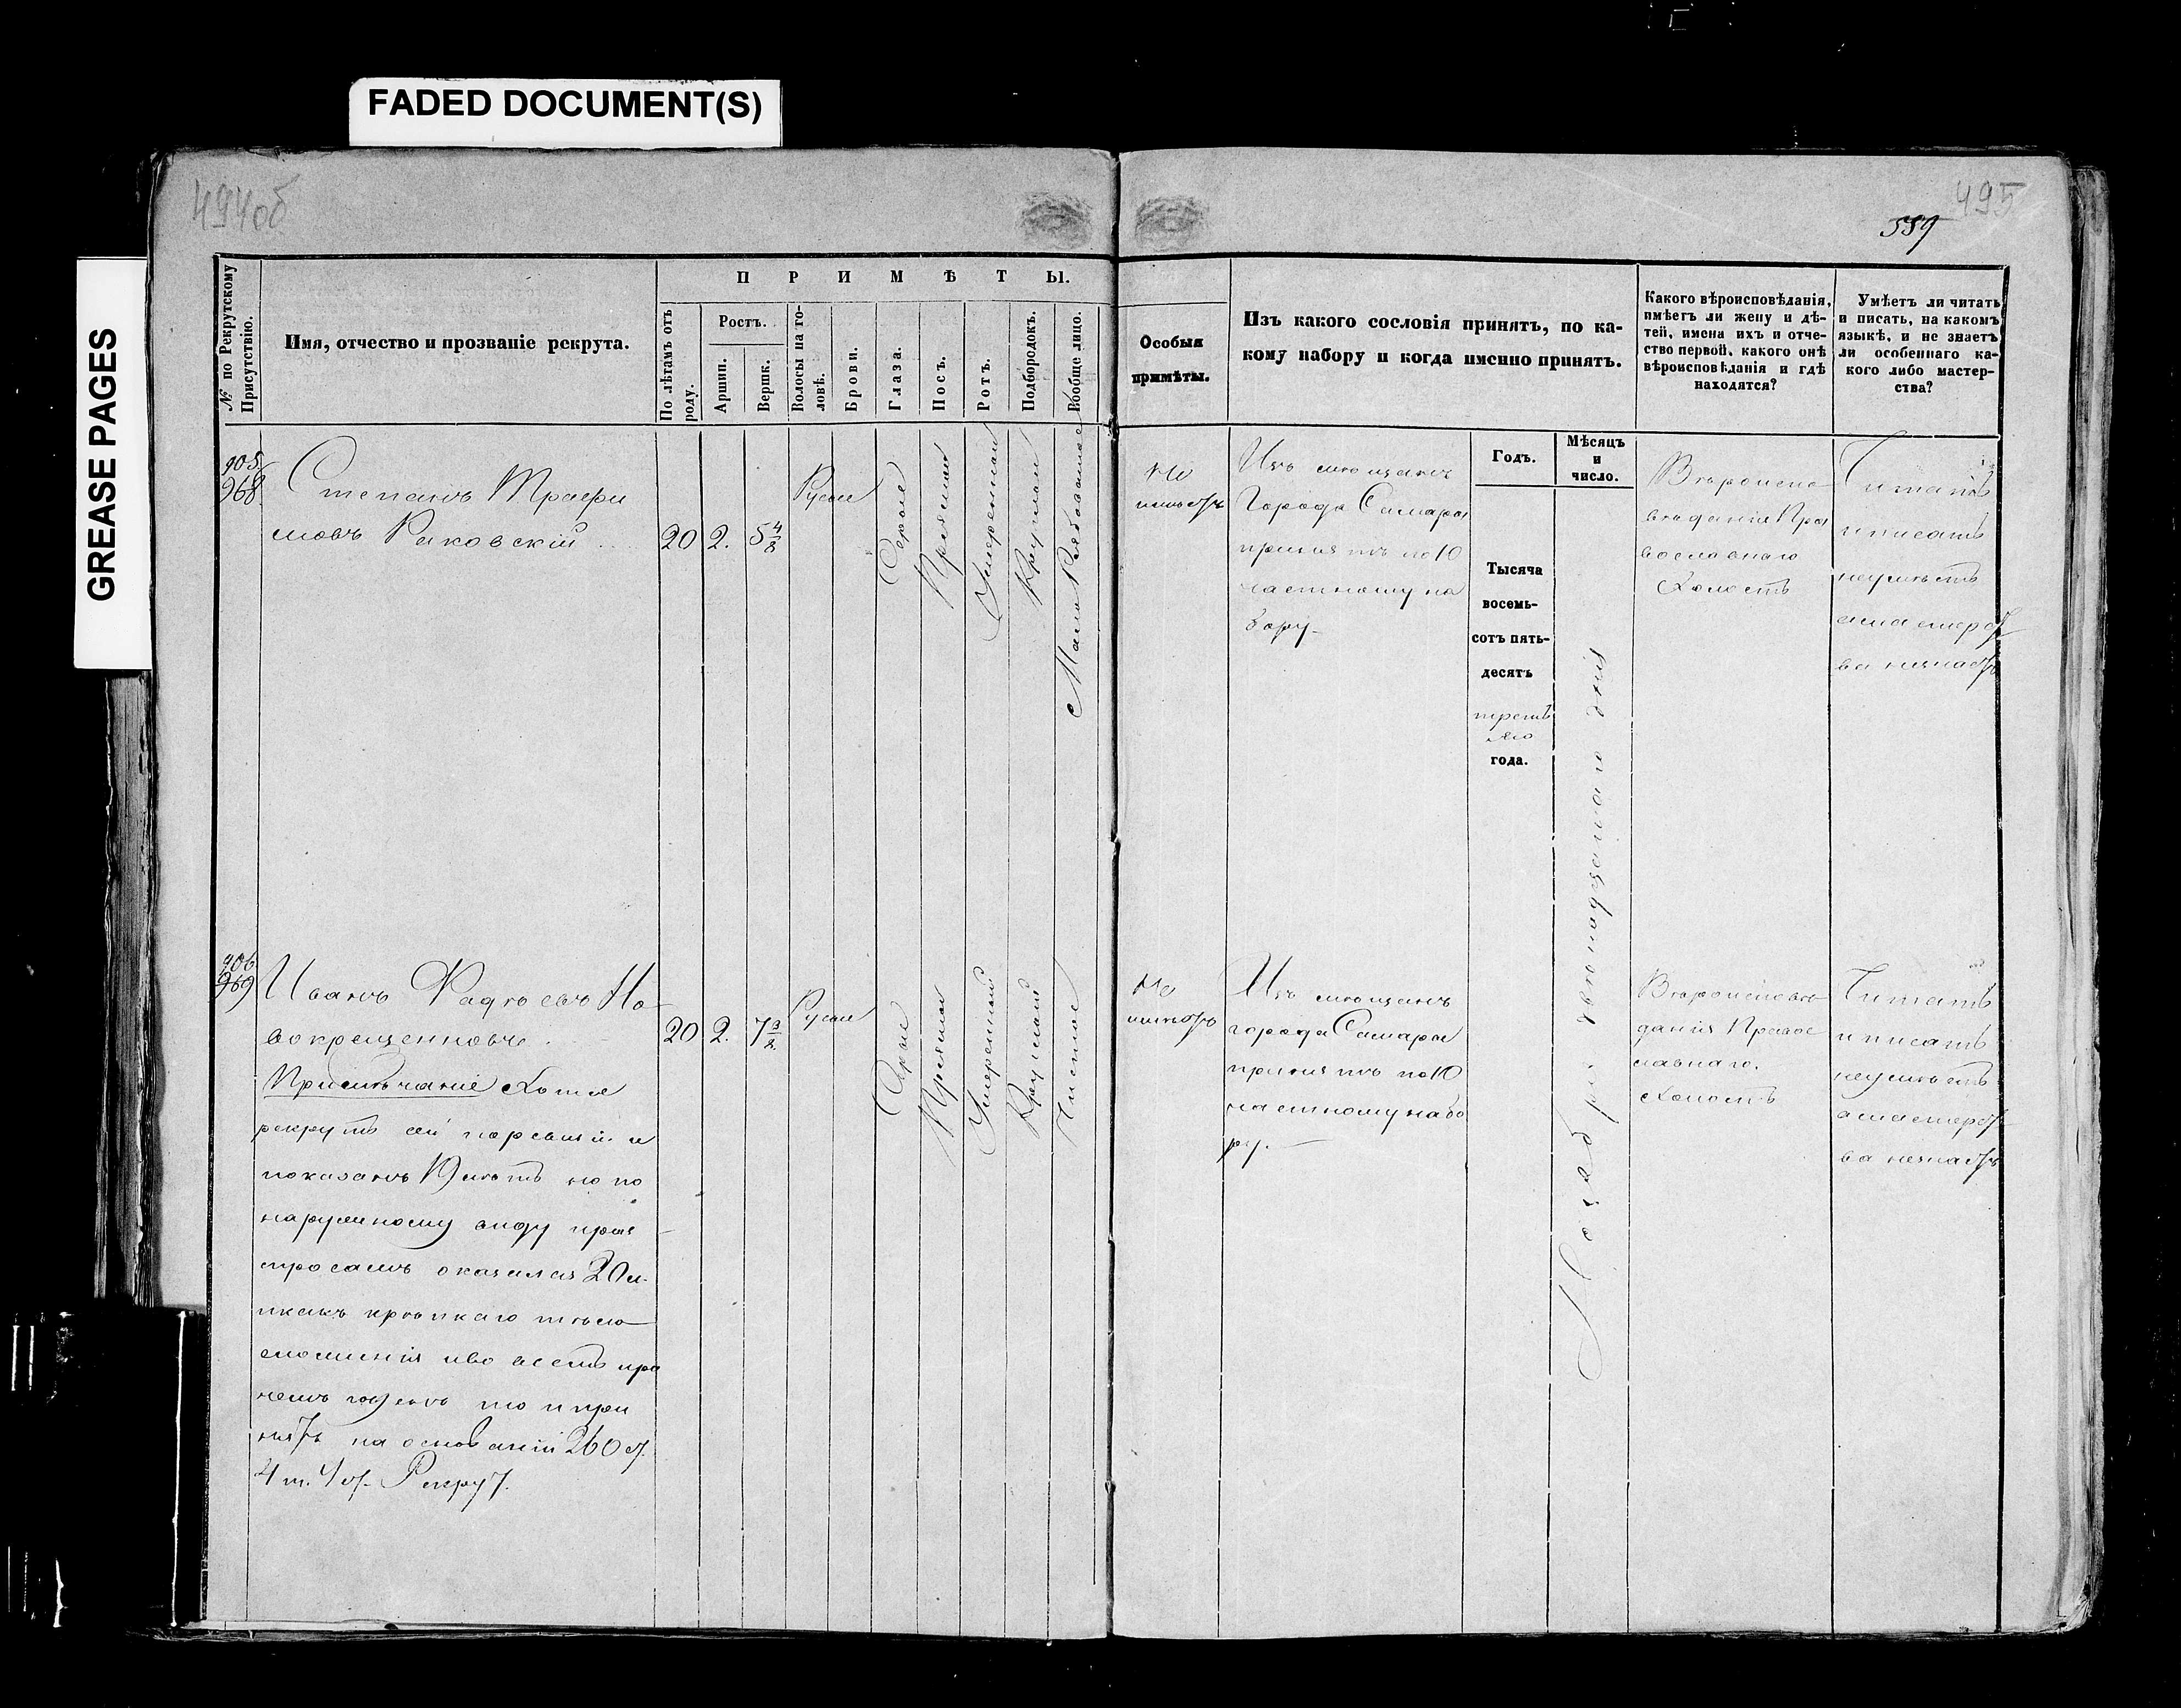 FADED DOCUMENT(S)
GREASE PAGES
494об
495
589
№ по Рекрутскому Присутствію.
Имя, отчество и прозваніе рекрута.
ПРИМѢТЫ.
По лѣтамъ отъ роду.
Ростъ.
Аршин.
Вершк.
Волосы на го-
ловѣ.
Брови.
Глаза.
Носъ.
Ротъ.
Подбородокъ.
Вообще лицо.
Особыя
примѣты.
Изъ какого сословія принятъ, по ка-
кому набору и когда именно принятъ.
Какого вѣроисповѣданія,
имѣетъ ли жену и дѣ-
тей, имена ихъ и отче-
ство первой, какого онѣ
вѣроисповѣданія и гдѣ
находятся?
Умѣетъ ли читать
и писать, на какомъ
языкѣ, и не знаетъ
ли особеннаго ка-
кого либо мастер-
ства?
Годъ.
Мѣсяцъ
и
число.
905
968
Степанъ Трафи
мовъ Раковскій
20
2.
5 4/8
Русые
Серые
Прямой
Умеренный
Круглый
Мало Рябоватое
Не
имѣетъ
Изъ мѣщанъ
Города Самары
принятъ по 10
частному на
бору
Тысяча
восемь-
сотъ пять-
десятъ
третья
го
года.
Ноября двенадцатаго дня
Вѣроиспо
вѣданія Пра
вославнаго
Холостъ
Читать
и писать
неумѣетъ
а мастерст
ва незнаетъ
906
969
Иванъ Фадѣевъ Но
вокрещенновъ.
20
2.
7 3/8
Русые
Серые
Прямой
Умеренный
Круглый
Чистое
Примѣчаніе Хотя
рекрутъ сей и
показанъ 19 лѣтъ но по
наружному виду
оказался 20 л.
и какъ крѣпкаго тѣло
сложенія и во всемъ про
чемъ годенъ то и при
нятъ на основаніи 260 ст.
4 т. Уст. Рекрут.
Не
имѣетъ
Изъ мѣщанъ
города Самары
принятъ по 10
частному набо
ру.
Вѣроисповѣ
данія Правос
лавнаго.
Холостъ
Читать
и писать
неумѣетъ
а мастерст
ва незнаетъ